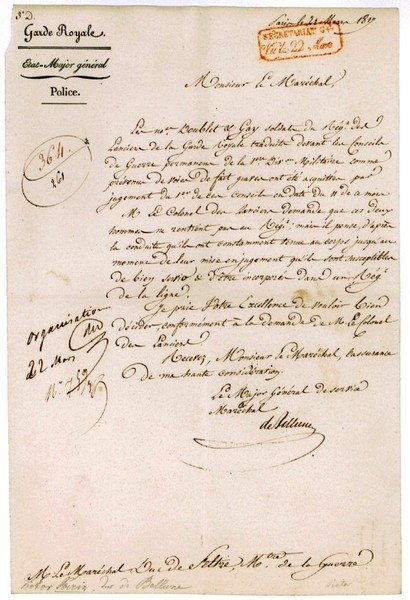 3e D.
Garde Royale.
Etat-Major général
Police.
Paris le 21 Mars 1817
SECRÉTARIAT Gal
Vu le 22 Mars
364
261
Monsieur le Maréchal
Les nommés Doublet & Gay soldats du Régt des
Lanciers de la Garde Royale traduits devant les Conseils
de Guerre permanens de la 1ere Dion Militaire comme
prévenus de voies de fait graves ont été acquittés par
jugement du 1er de ces conseils en date du 11 de ce mois
M. le Colonel des Lanciers demande que ces deux
hommes ne rentrent pas au Régt mais il pense, d'après
la conduite qu'ils ont constamment tenue au corps jusqu'au
moment de leur mise en jugement qu'ils sont susceptibles
de bien servir & d'être incorporés dans un Régt
de la ligne.
Je prie Votre Excellence de vouloir bien
décider conformément à la demande de M. le Colonel
des Lanciers
Recevez, Monsieur le Maréchal, l'assurance
de ma haute considération.
Organisation
22 Mars
Le Major Général de service
Maréchal
de Bellune
M. Le Maréchal Duc de Feltre, Mtre de la Guerre
Victor Perrin, duc de Bellune
Victor